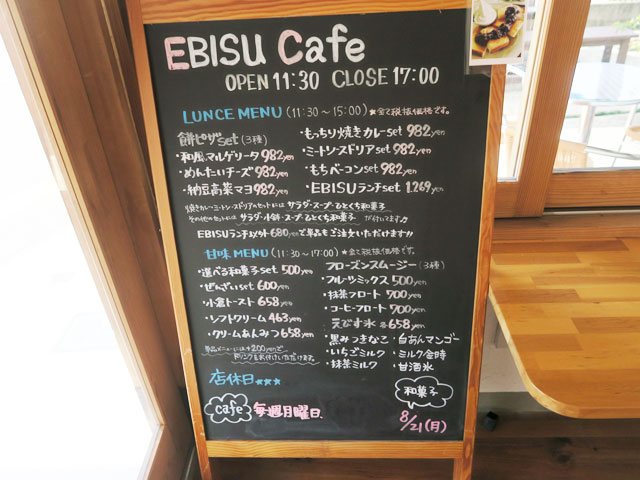 EBISU Cafe
OPEN 11:30 CLOSE 17:00
LUNCE MENU (11:30〜15:00) ★全て税抜価格です。
餅ピザset (3種)
・和風マルゲリータ 982yen
・めんたいチーズ 982yen
・納豆高菜マヨ 982yen
・もっちり焼きカレーset 982yen
・ミートソースドリアset 982yen
・もちベーコンset 982yen
・EBISUランチset 1,269yen
焼きカレー・ミートソースドリアのセットには サラダ・スープ・ひとくち和菓子
その他のセットには サラダ・小鉢・スープ・ひとくち和菓子 が付いてます!!
EBISUランチ以外 680yenで単品もご注文いただけます!!
甘味MENU (11:30〜17:00) ★全て税抜価格です。
・選べる和菓子set 500yen
・ぜんざいset 600yen
・小倉トースト 658yen
・ソフトクリーム 463yen
・クリームあんみつ 658yen
単品メニューには+200yenで
ドリンクをお付けいただけます。
フローズンスムージー (3種)
・フルーツミックス 500yen
・抹茶フロート 700yen
・コーヒーフロート 700yen
えびす氷 各658yen
・黒みつきなこ ・白あんマンゴー
・いちごミルク ・ミルク金時
・抹茶ミルク ・甘酒氷
店休日★★★
cafe 毎週月曜日.
和菓子
8/21(月)